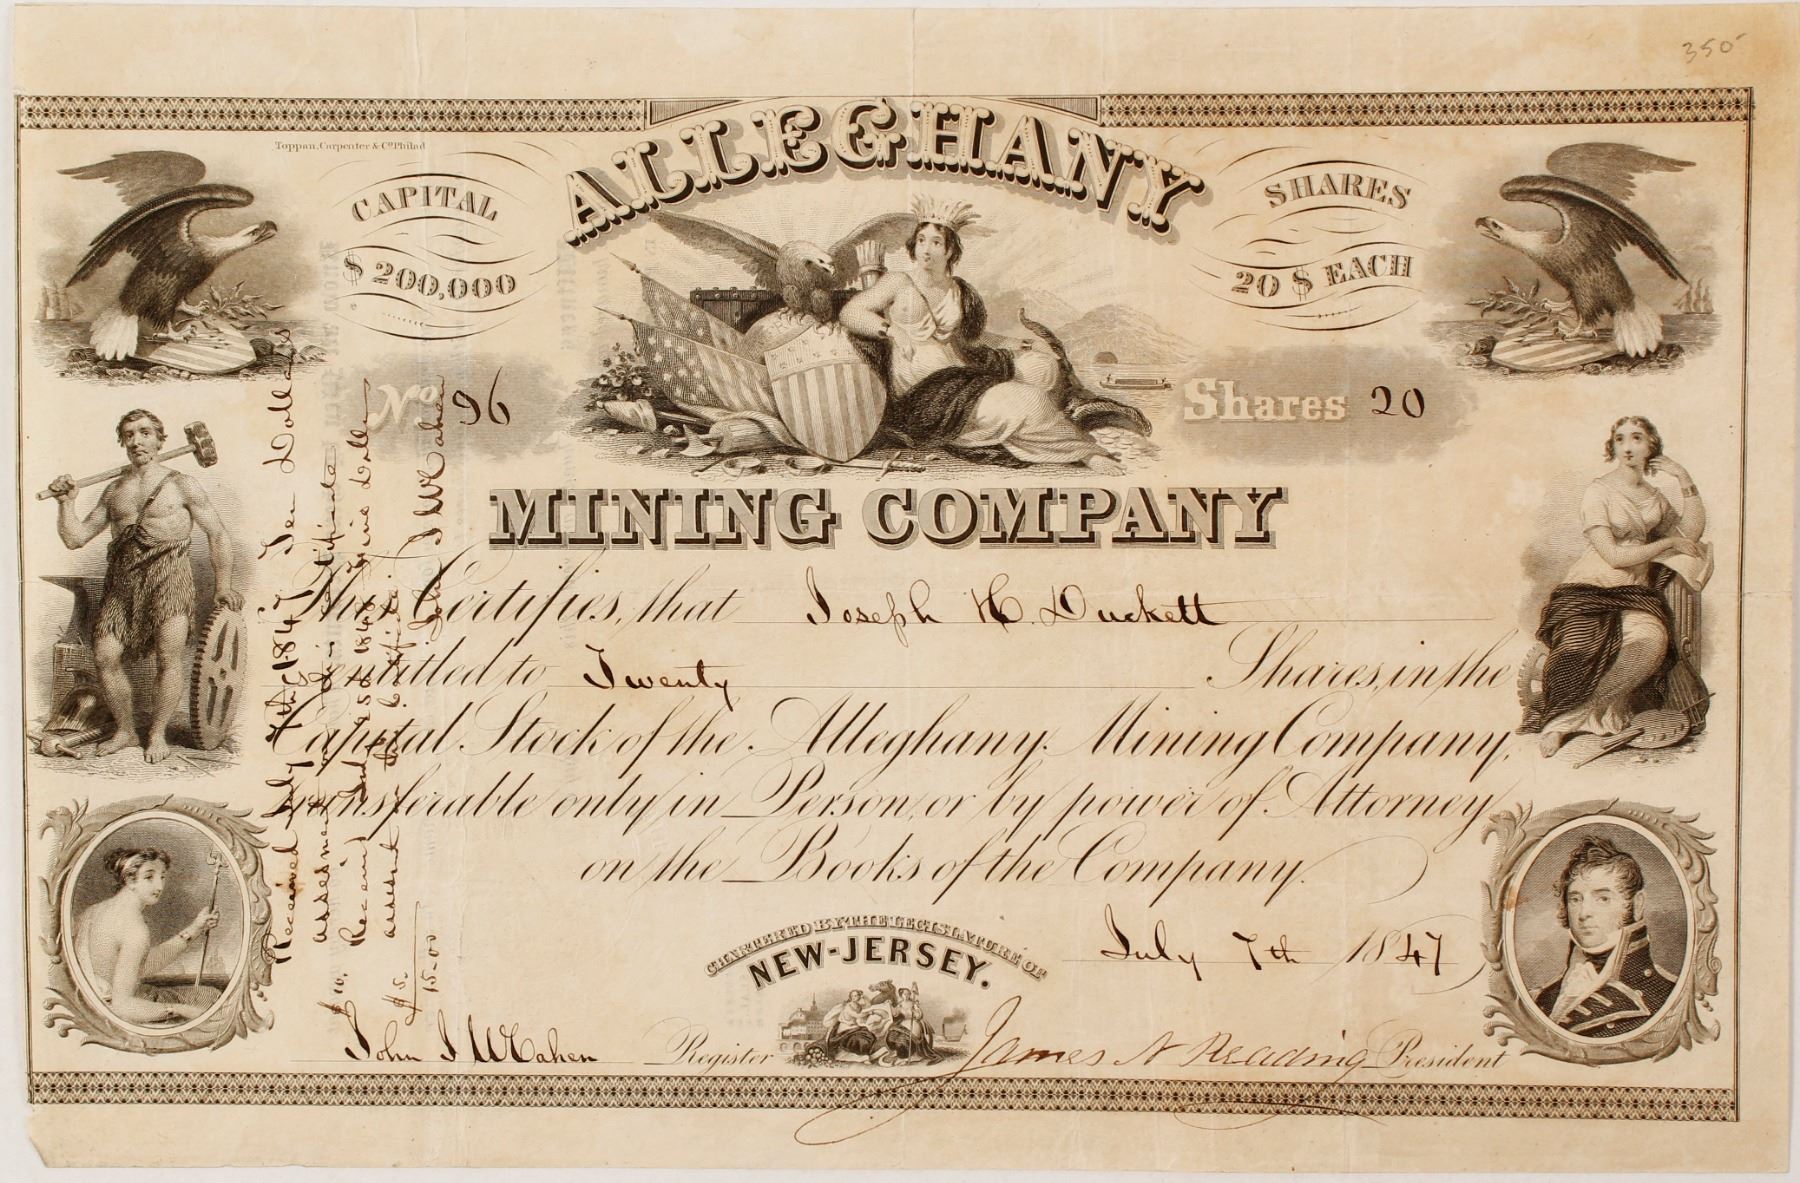 350
Toppan, Carpenter & Co. Philad
ALLEGHANY
CAPITAL
$ 200,000
SHARES
20 $ EACH
No. 96
Shares 20
MINING COMPANY
This Certifies, that Joseph H. Duckett
is entitled to Twenty Shares, in the
Capital Stock of the Alleghany Mining Company,
transferable only in Person, or by power of Attorney
on the Books of the Company.
CHARTERED BY THE LEGISLATURE OF
NEW-JERSEY.
July 7th 1847
Register
James N Reading President
Received July 7th 1847 Ten Dollars
$10.
Received
$5.
15-00